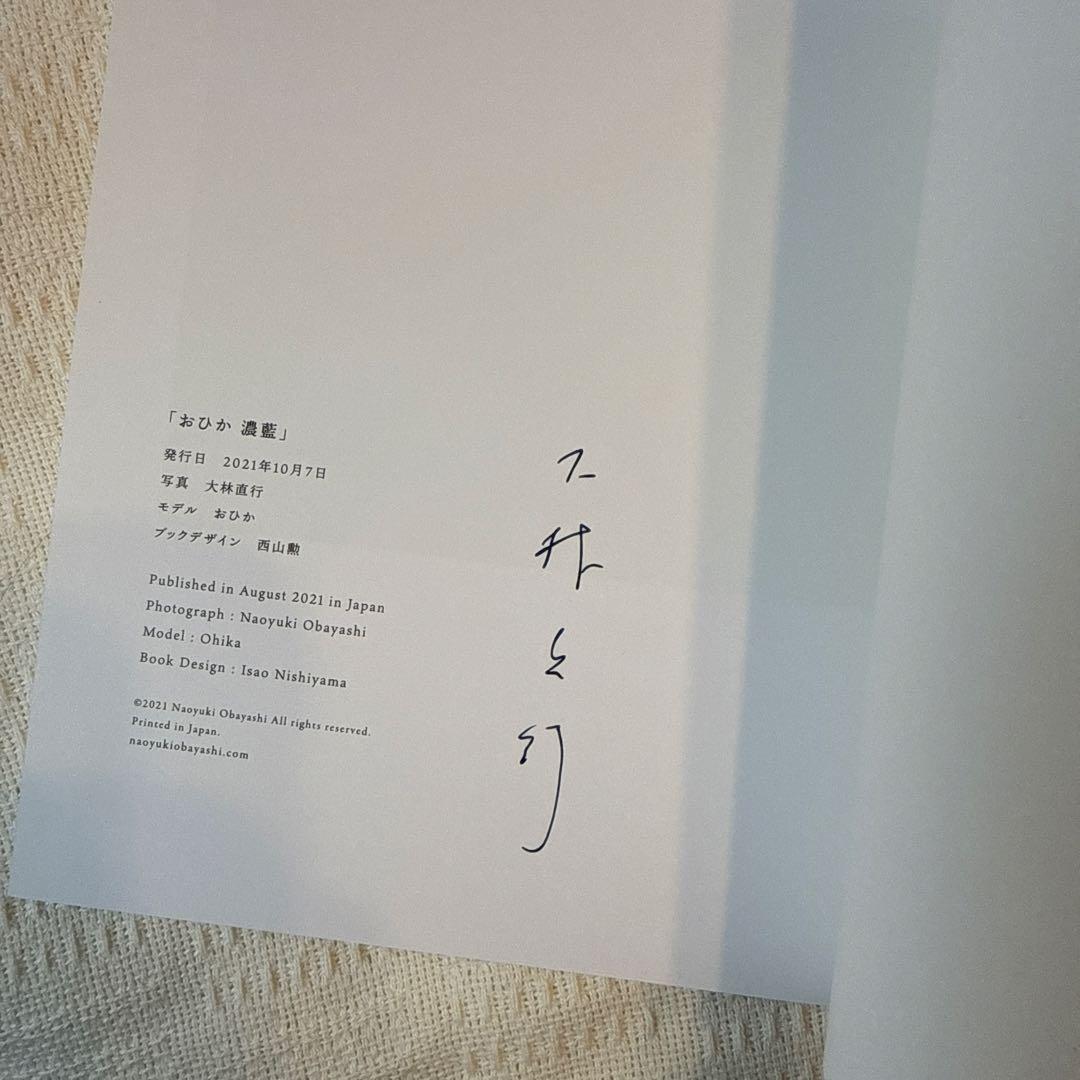 「おひか 濃藍」
発行日　2021年10月7日
写真　大林直行
モデル　おひか
ブックデザイン　西山勲
Published in August 2021 in Japan
Photograph : Naoyuki Obayashi
Model : Ohika
Book Design : Isao Nishiyama
©2021 Naoyuki Obayashi All rights reserved.
Printed in Japan.
naoyukiobayashi.com